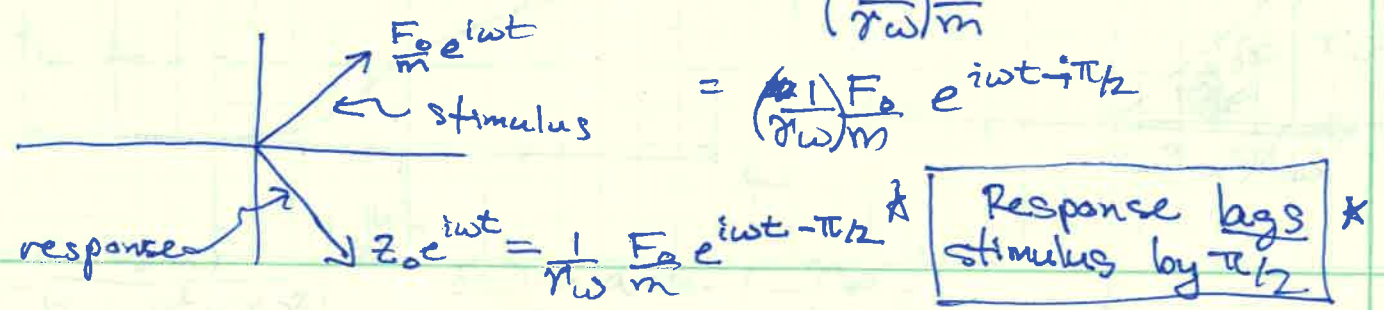 (1/γω) 1/m
F₀/m e^{iωt}
← stimulus
= (1/γω) F₀/m e^{iωt-iπ/2}
response
z₀e^{iωt} = 1/γω F₀/m e^{iωt-π/2}
* Response lags *
stimulus by π/2